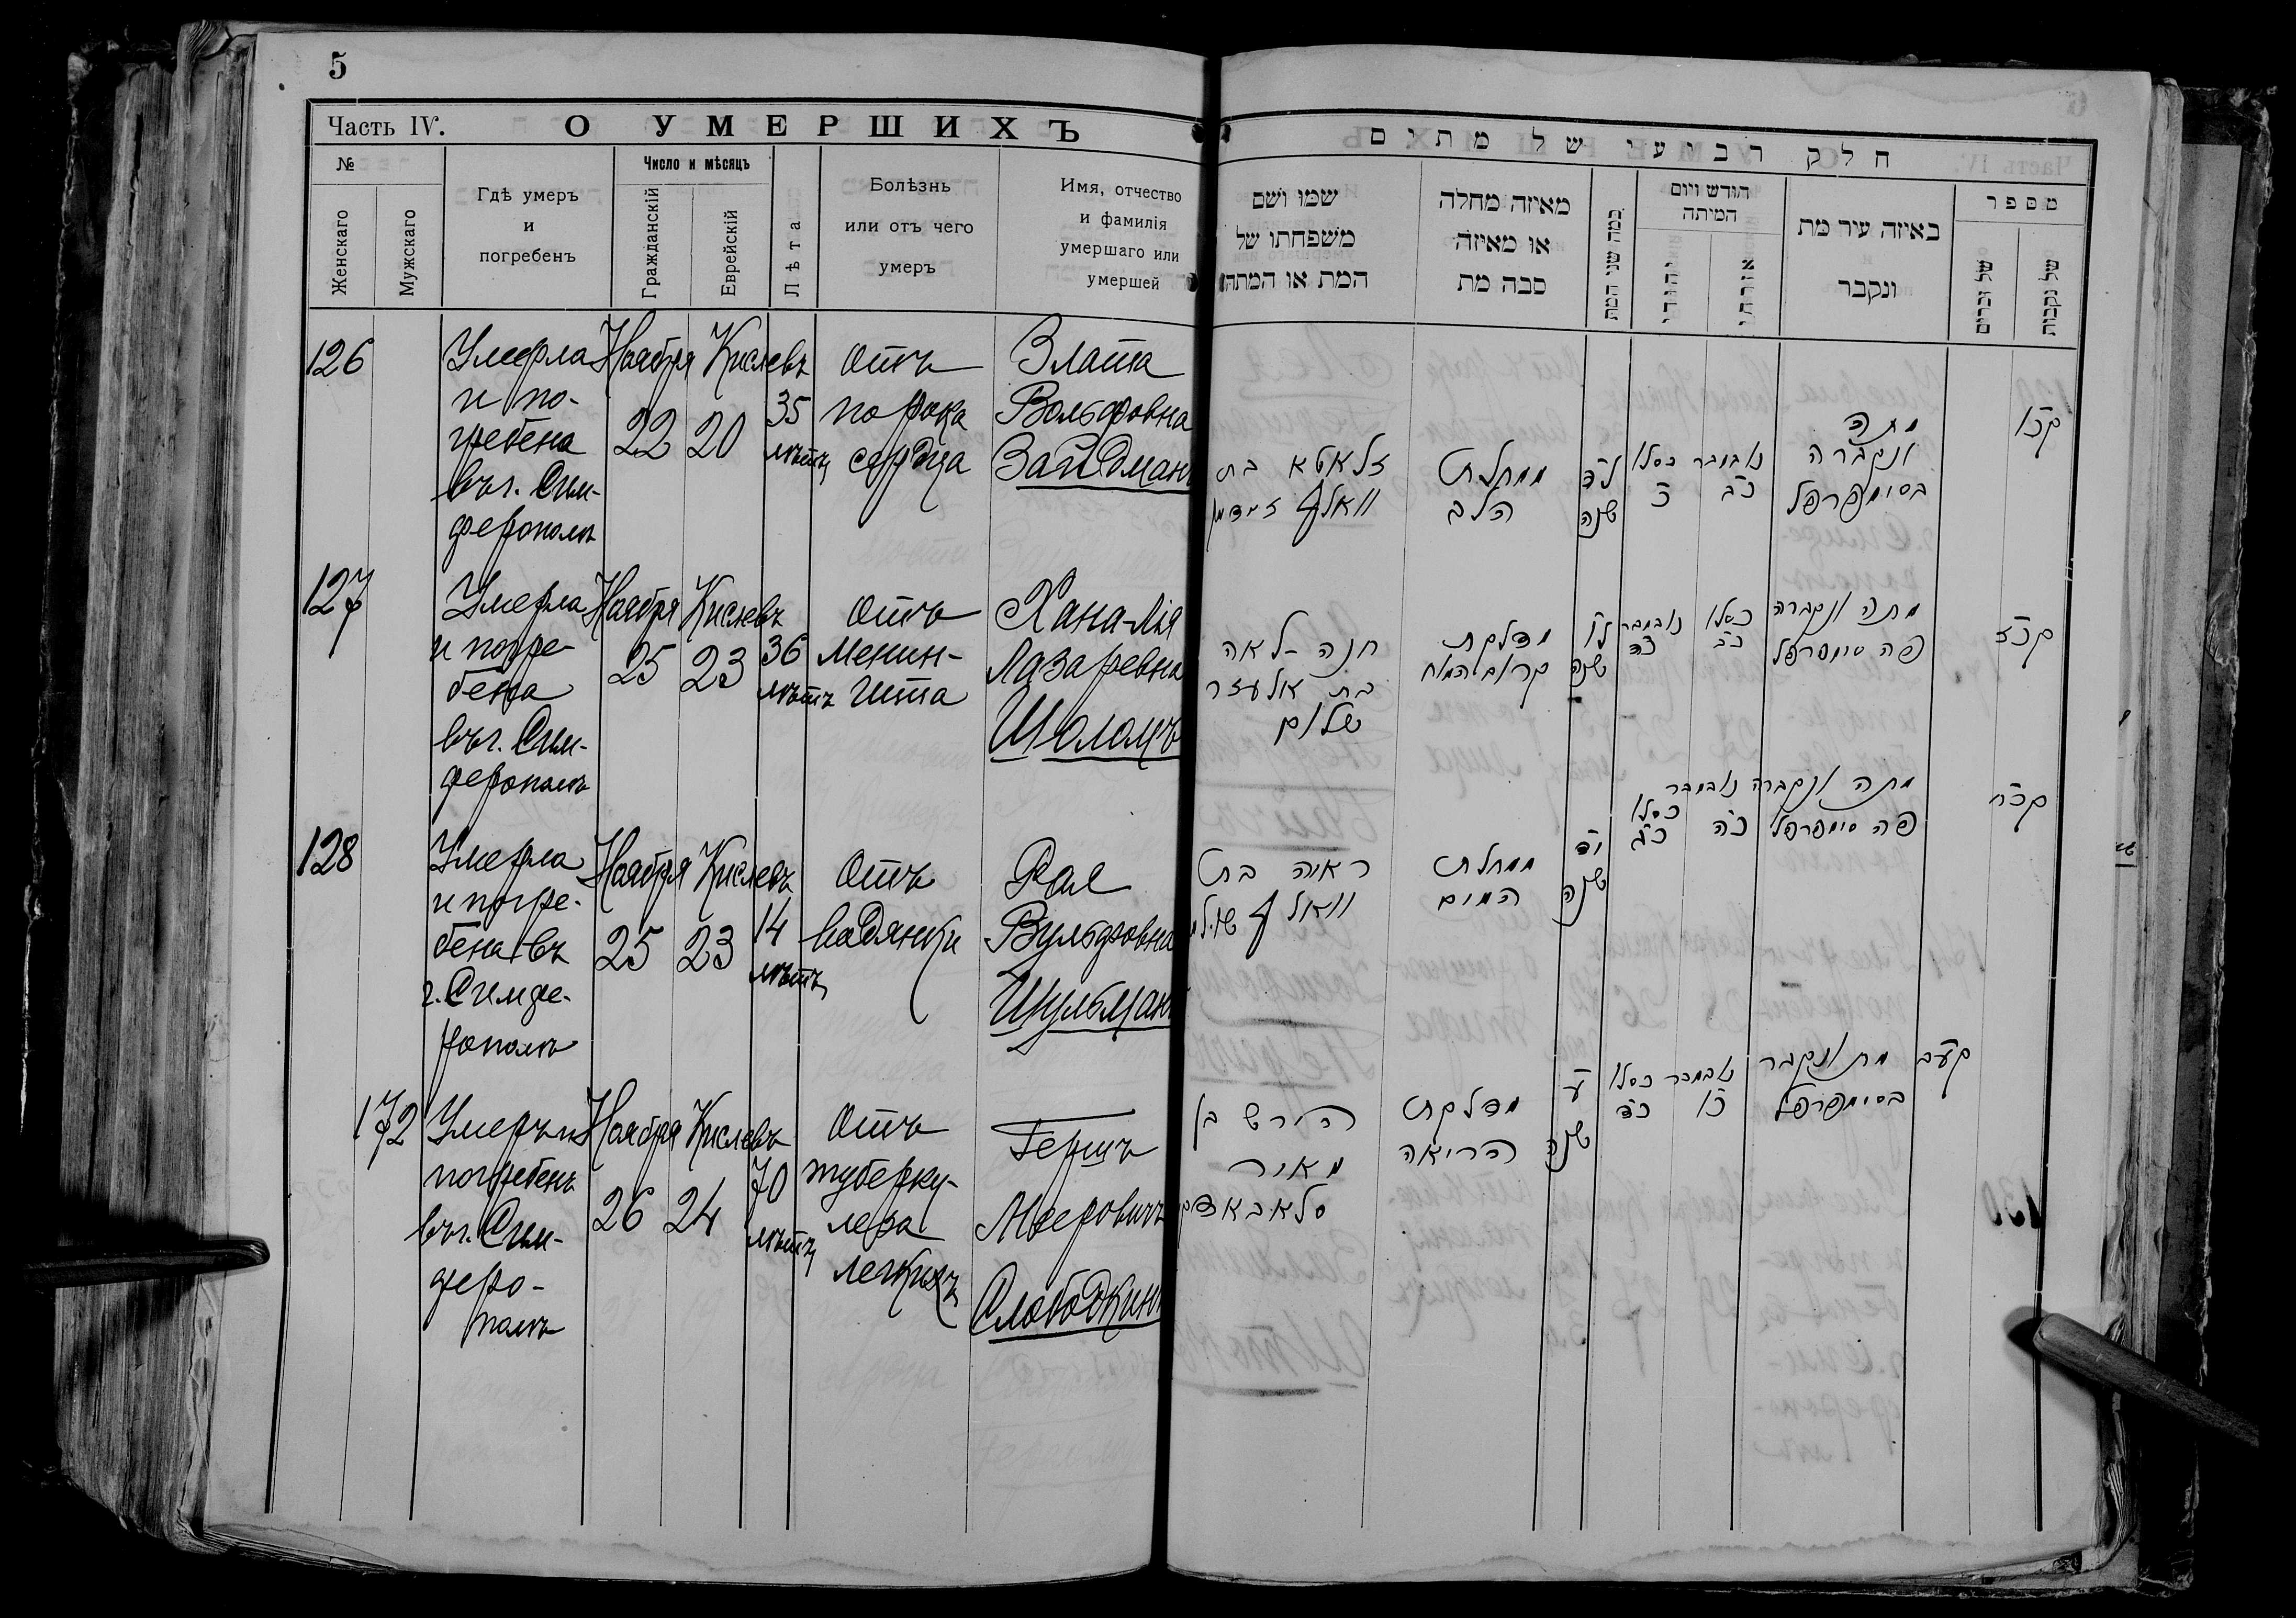 5
Часть IV. О УМЕРШИХЪ
№
Женскаго
Мужскаго
Гдѣ умеръ
и
погребенъ
Число и мѣсяцъ
Гражданскій
Еврейскій
Лѣта
Болѣзнь
или отъ чего
умеръ
Имя, отчество
и фамилія
умершаго или
умершей
126
Умерла
и по-
гребена
въ г. Сим-
ферополѣ
Ноября
22
Кислевъ
20
35
лѣтъ
отъ
порока
сердца
Злата
Вольфовна
Зайдманъ
127
Умерла
и погре-
бена
въ г. Сим-
ферополѣ
Ноября
25
Кислевъ
23
36
лѣтъ
отъ
менин-
гита
Хана-Лія
Лазаревна
Шоломъ
128
Умерла
и погре-
бена въ
г. Симфе-
рополѣ
Ноября
25
Кислевъ
23
14
лѣтъ
отъ
водянки
Рая
Вульфовна
Шульманъ
172
Умеръ и
погребенъ
въ г. Сим-
феро-
полѣ
Ноября
26
Кислевъ
24
70
лѣтъ
отъ
туберку-
леза
легкихъ
Гершъ
Мееровичъ
Слободкинъ
חלק רביעי של מתים
מספר
של נקבות
של זכרים
באיזה עיר מת
ונקבר
חודש ויום
המיתה
במה שני המת
מאיזה מחלה
או מאיזה
סבה מת
שמו ושם
משפחתו של
המת או המתה
קכו
מתה
ונקברה
בסימפרפל
נובמבר
כב
כסלו
כ
לה
שנה
ממחלת
הלב
זלאטא בת
וואלף זיידמן
קכז
מתה ונקברה
פה סימפרפל
נובמבר
כה
כסלו
כג
לו
שנה
מדלקת
קרום המוח
חנה-לאה
בת אלעזר
שלום
קכח
מתה ונקברה
פה סימפרפל
נובמבר
כה
כסלו
כג
יד
שנה
ממחלת
המים
ראיה בת
וואלף
קעב
מת ונקבר
בסימפרפל
נובמבר
כו
כסלו
כד
ע
שנה
מדלקת
הריאה
הירש בן
מאיר